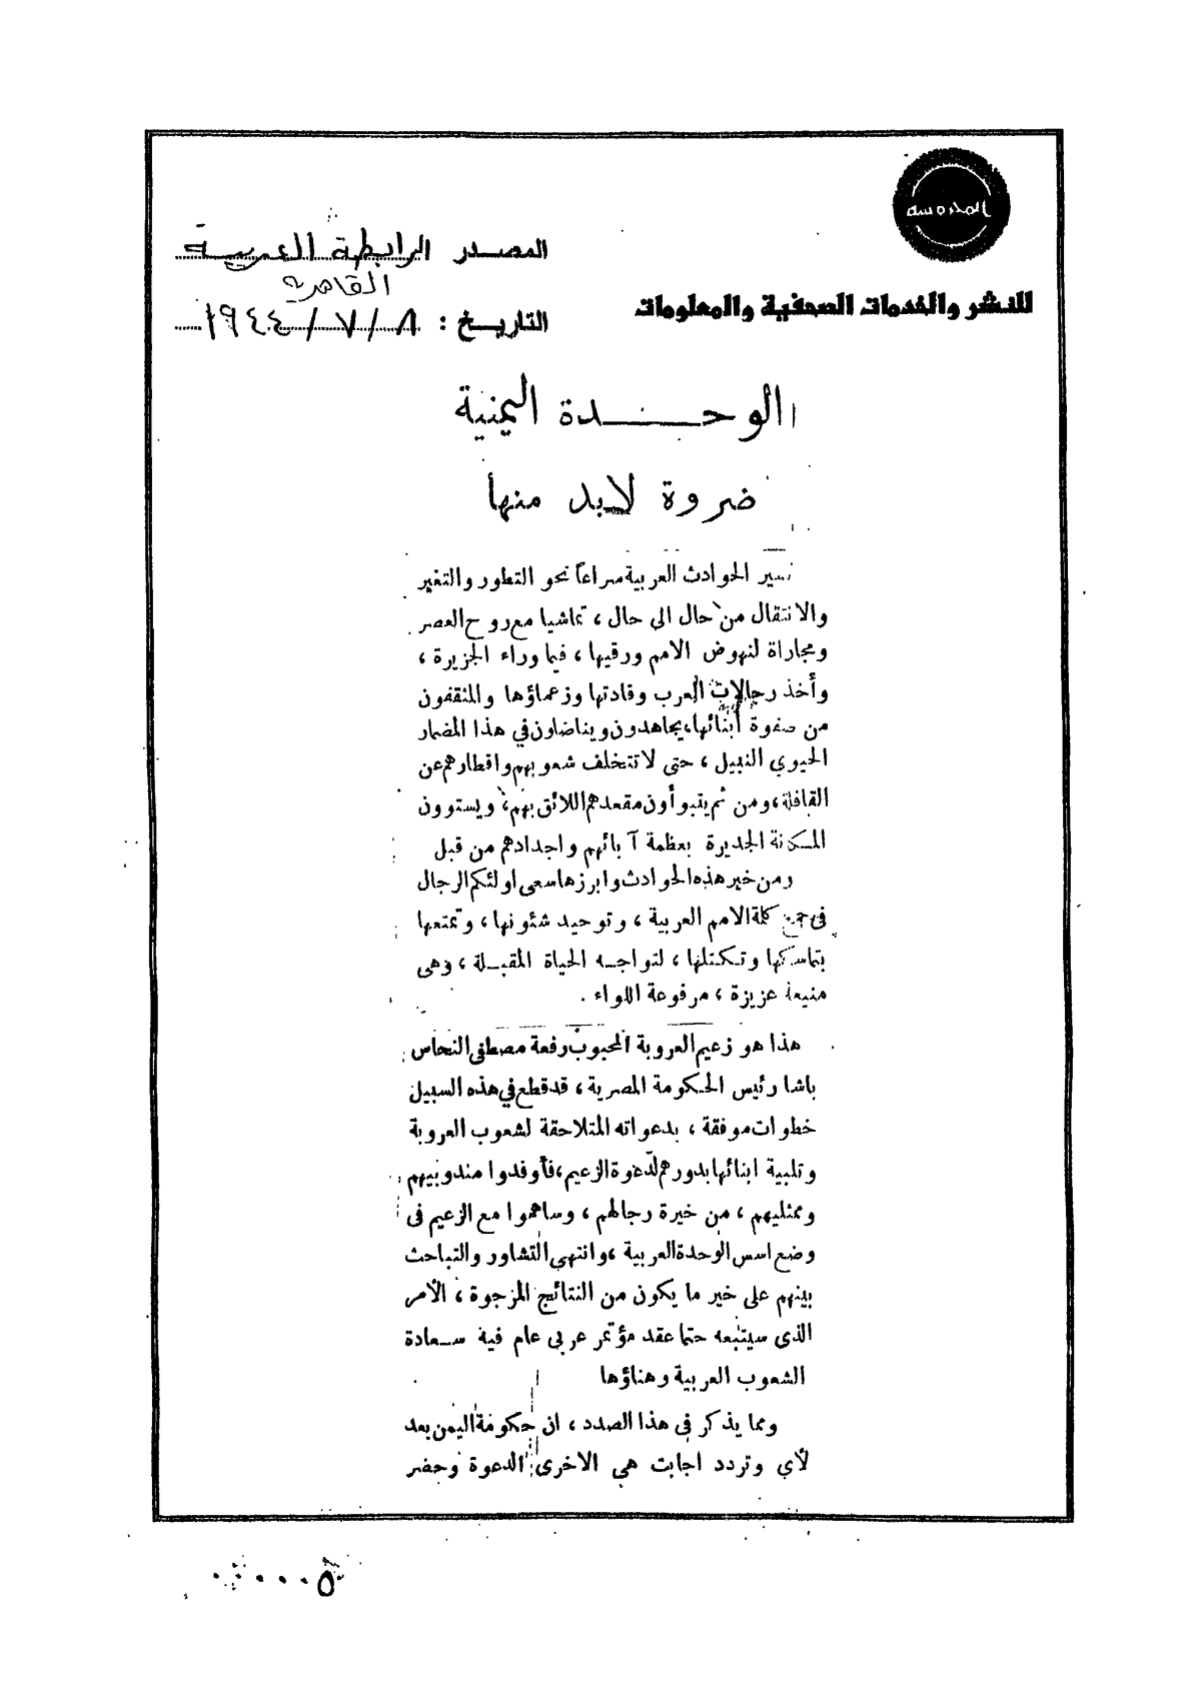 المحروسة
المصدر الرابطة العربية
القاهرة
للنشر والخدمات الصحفية والمعلومات
التاريخ : ٨ / ٧ / ١٩٤٤
الوحدة اليمنية
ضروة لابد منها
تسير الحوادث العربية سراعاً نحو التطور والتغير
والانتقال من حال الى حال ، تماشيا مع روح العصر
ومجاراة لنهوض الامم ورقيها ، فيما وراء الجزيرة ،
وأخذ رجالات العرب وقادتها وزعماؤها والمثقفون
من صفوة أبنائها، يجاهدون ويناضاون في هذا المضمار
الحيوي النبيل ، حتى لا تتخلف شعوبهم واقطارهم عن
القافلة ، ومن ثم يتبوأون مقعدهم اللائق بهم ، ويستوون
المكانة الجديرة بعظمة آبائهم واجدادهم من قبل
ومن خير هذه الحوادث وابرزها سعى اولئكم الرجال
فى جمع كلمة الامم العربية ، وتوحيد شئونها ، وتمتعها
بتماسكها وتكتلها ، لتواجه الحياة المقبلة ، وهى
منيعة عزيزة ، مرفوعة اللواء .
هذا هو زعيم العروبة المحبوب رفعة مصطفى النحاس
باشا رئيس الحكومة المصرية ، قد قطع في هذه السبيل
خطوات موفقة ، بدعواته المتلاحقة لشعوب العروبة
وتلبية ابنائها بدورهم لدعوة الزعيم ، فأوفدوا مندوبيهم
وممثليهم ، من خيرة رجالهم ، وساهموا مع الزعيم فى
وضع اسس الوحدة العربية ، وانتهى التشاور والتباحث
بينهم على خير ما يكون من النتائج المرجوة ، الأمر
الذى سيتبعه حتما عقد مؤتمر عربى عام فيه سعادة
الشعوب العربية وهناؤها
ومما يذكر في هذا الصدد ، ان حكومة اليمن بعد
لأي وتردد اجابت هي الاخرى الدعوة وحضر
٠٠٠٠٥